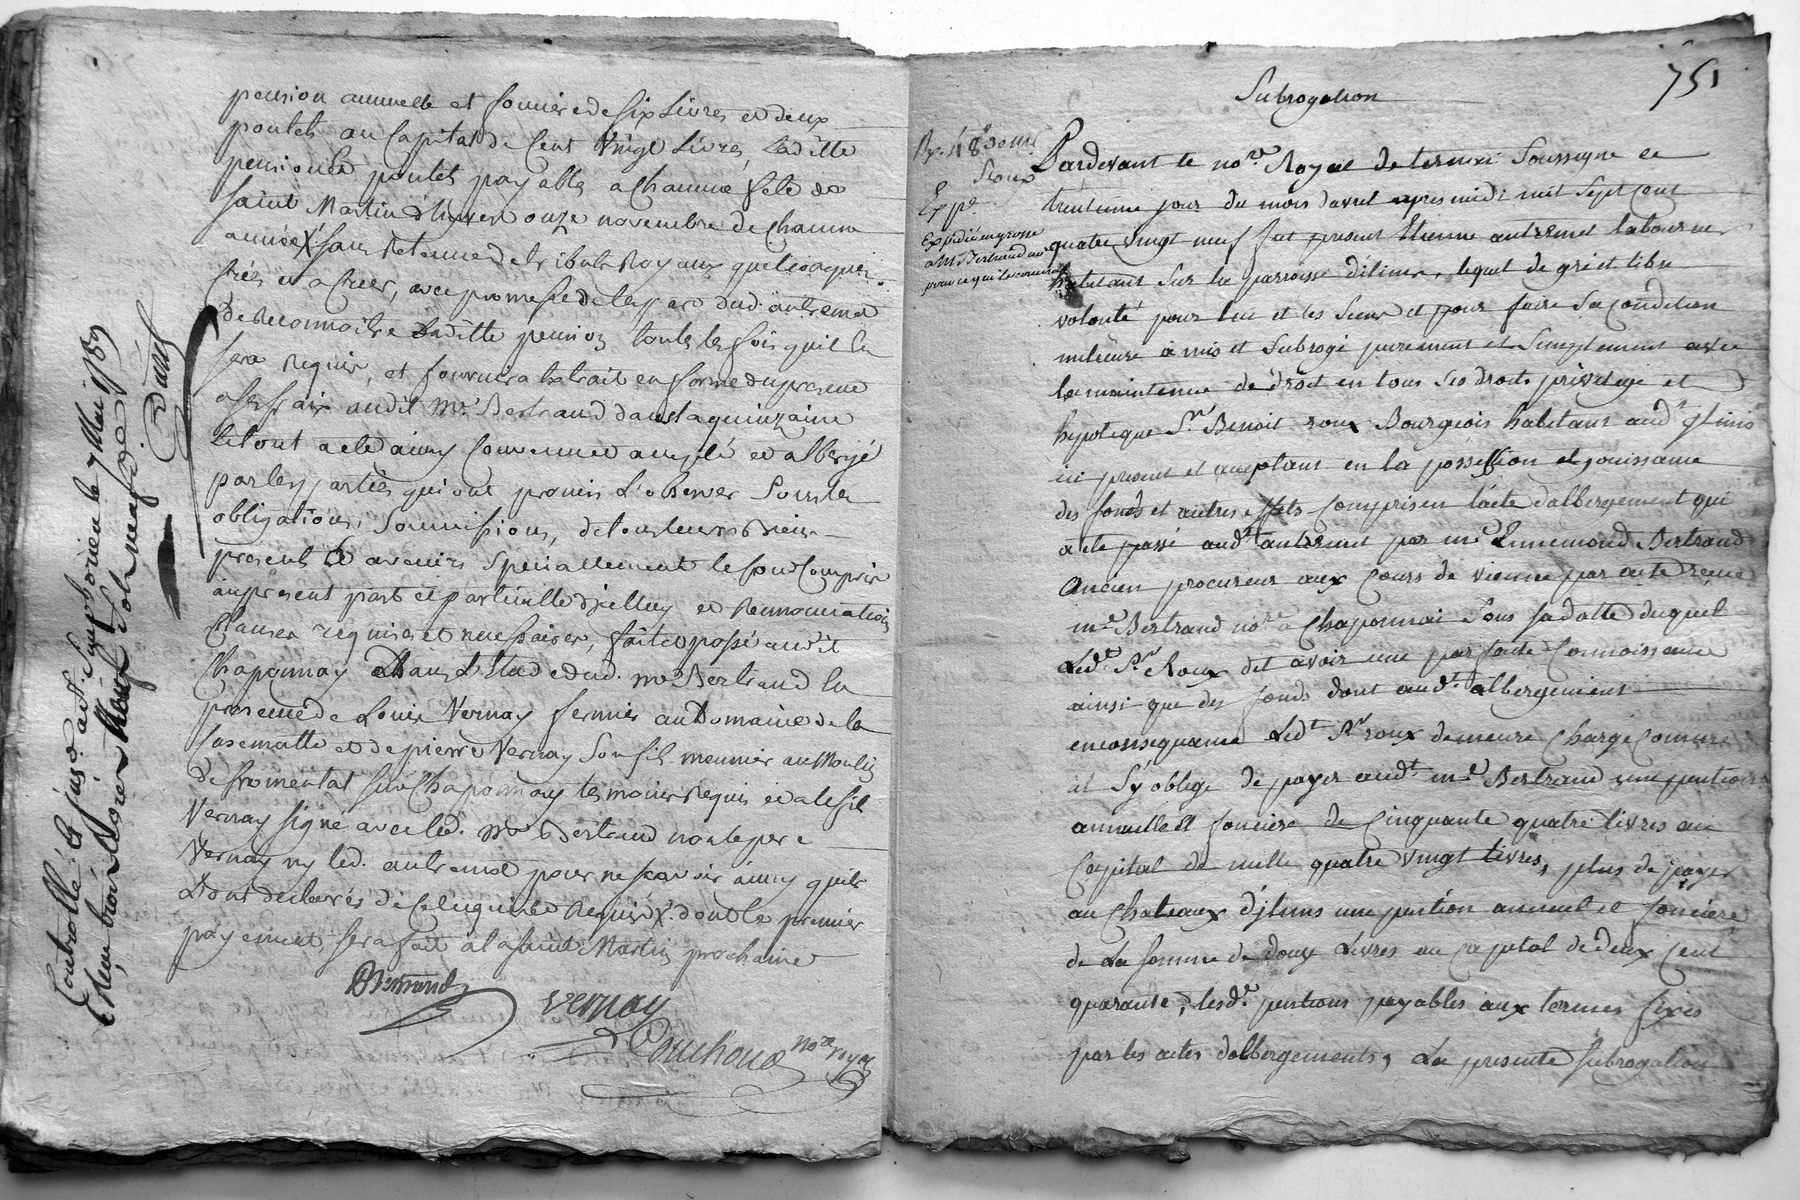 pension annuelle et fonciere de six Livres et deux
poulets au Capital de Cent Vingt Livres, Laditte
pension et poulets payables a Chacune fete de
saint Martin d'hiver onze novembre de Chacune
année X sans Retenue de tributs Royaux quelconques
créés et a créer, avec promesse de la part dud. autremet
de Reconnoitre Laditte pension toutes les fois quil en
sera Requis, et fournira Extrait en forme du present
a ses frais audit Mr. Bertrand dans la quinzaine
le tout a eté ainsy Convenu accepté et albergé
par les parties qui ont promis L'observer sous les
obligations, Soumissions, de tous leurs biens
presents et avenirs Specialement le fond Compris
au present part et partie d'icelluy et Renonciations
Clauses requises et necessaires, fait et passé audit
Chaponnay Dans L'Etude dud. me Bertrand en
presence de Louis Vernay fermier au Domaine de la
Casematte et de pierre Vernay Son fils meunier au Moulin
de fromental sur Chaponnay temoins Requis et a le fils
Vernay signé avec led. Me Bertrand non le pere
Vernay ny led. autremet pour ne scavoir ainsy quils
L'ont declarés de Ce enquis et Requis X dont le premier
payement sera fait a la saint Martin prochaine
Bertrand
Vernay
Couchoud nore royal
Controllé à St. Simphorien le 7 Mai 1789
751
Subrogation
Roux
Expé.
Expedié en grosse
a Me Bertrand
pour ce qui le concerne
Pardevant le nore. Royal de ternai Soussigné ce
trentieme jour du mois davril apres midi mil sept cent
quatre vingt neuf fut present Etienne autremet laboureur
habitant sur la parroisse d'ilins, lequel de gré et libre
volonté pour lui et les siens et pour faire sa condition
meilleure a mis et subrogé purement et simplement avec
la maintenue de droit en tous ses droits privilege et
hypoteque Sr. Benoit roux Bourgeois habitant aud. ylins
ici present et acceptant en la possession et jouissance
des fonds et autres effets compris en l'acte dalbergement qui
a eté passé audt. autremet par me. Ennemond Bertrand
ancien procureur aux cours de vienne par acte reçu
me. Bertrand nore a Chaponnai sous sa datte duquel
Ledt. Sr. Roux dit avoir une parfaite connoissance
ainsi que des fonds dont audt. albergement
enconsequance Ledt Sr roux demeure chargé comme
il s'y oblige de payer audt. me. Bertrand une pention
annuelle et fonciere de Cinquante quatre livres au
Capital de mille quatre vingt livres, plus de payer
au Chateaux d'ylins une pention annuel et fonciere
de La somme de douze Livres au capital de deux cent
quarante, lesdes. pentions payables aux termes fixés
par les actes dalbergements, La presente subrogation